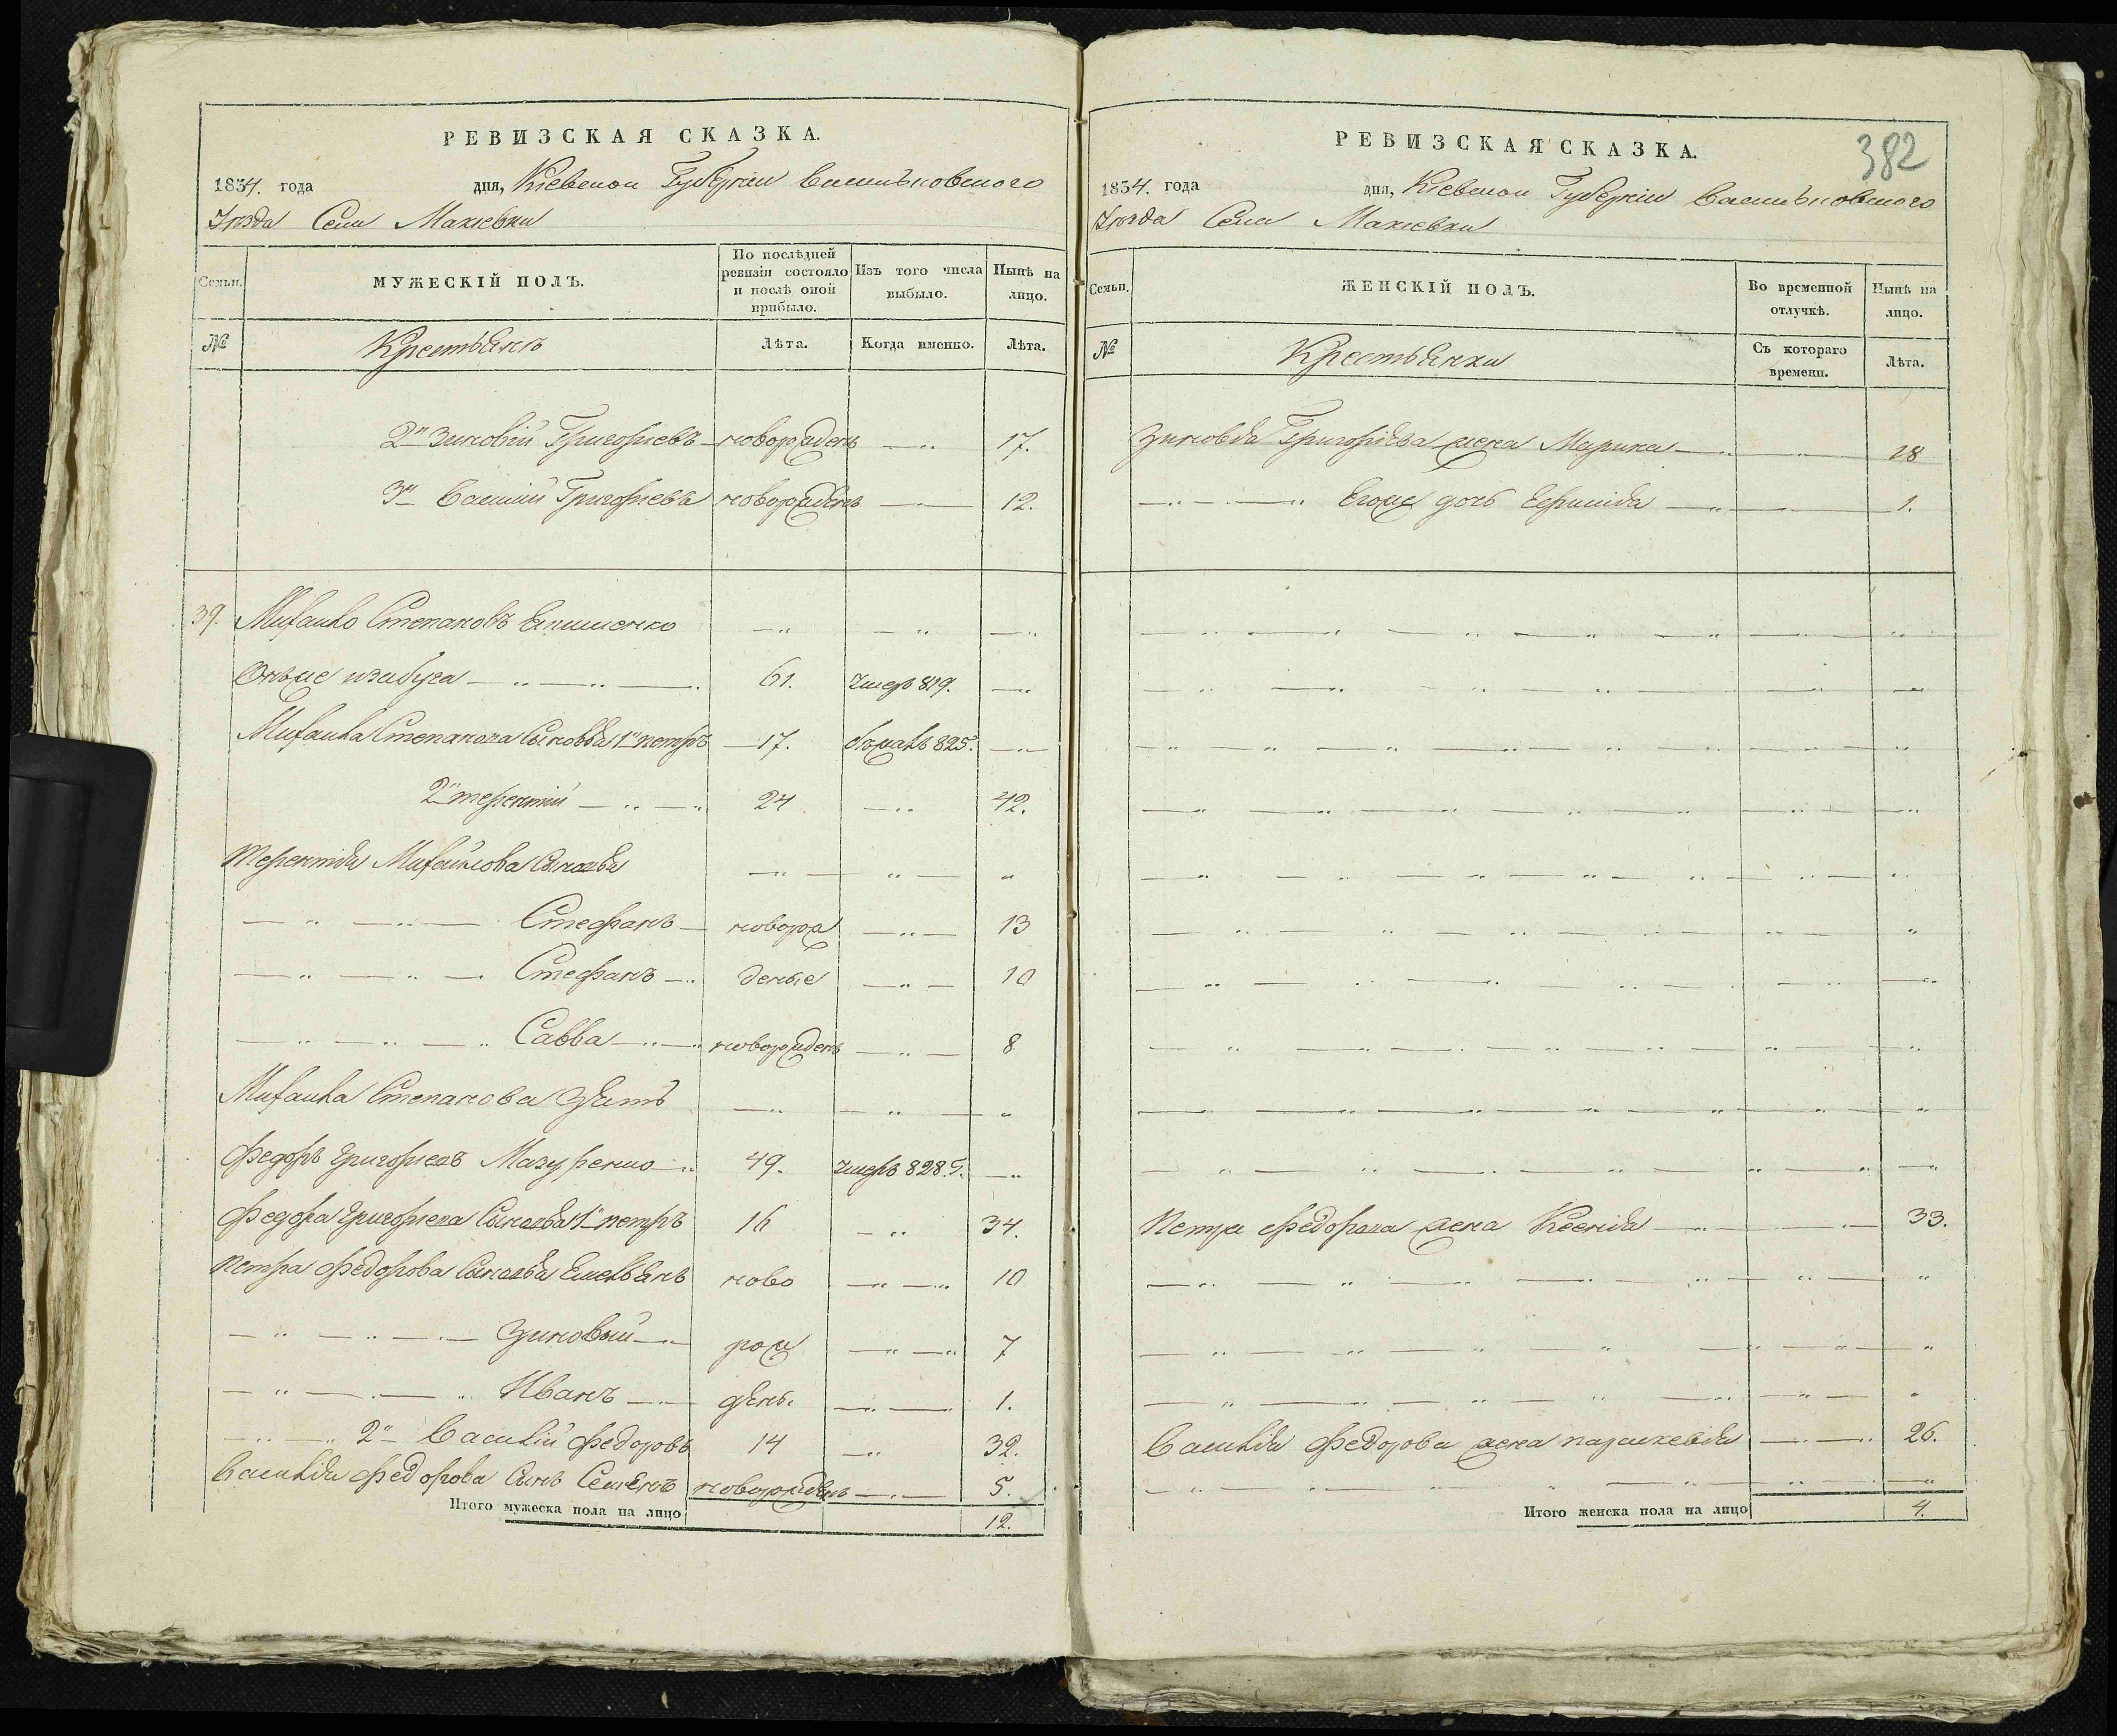 РЕВИЗСКАЯ СКАЗКА.
1834. года дня, Кіевской Губерніи Васильковского
Уѣзда Села Макіевки
Семьи. МУЖЕСКІЙ ПОЛЪ. По послѣдней ревизіи состояло и послѣ оной прибыло. Изъ того числа выбыло. Нынѣ на лицо.
№ Крестьянъ Лѣта. Когда именно. Лѣта.
2й Зиновій Григоріевъ новорожденъ 17.
3й Василій Григоріевъ новорожденъ 12.
39. Михайло Степановъ
61. умеръ 819.
Михайла Степанова Сыновья 1й петръ 17. бежалъ 825.
2й терентій 24 42.
терентія Михайлова Сыновья
Стефанъ новорож 13
Стефанъ деные 10
Савва новорожденъ 8
Михайла Степанова зять
Федоръ Григорьевъ Мазуренко 49. умеръ 828. Г.
Федора Григорьева Сыновья 1й петръ 16 34.
петра Федорова Сыновья Емельянъ ново 10
Зиновый рож 7
Иванъ дены. 1.
2й Василій Федоровъ 14 32.
Василія Федорова Сынъ Семенъ новорожденъ 5.
Итого мужеска пола на лицо 12.
РЕВИЗСКАЯ СКАЗКА.
382
1834. года дня, Кіевской Губерніи Васильковского
Уѣзда Села Макіевки
Семьи. ЖЕНСКІЙ ПОЛЪ. Во временной отлучкѣ. Нынѣ на лицо.
№ Крестьянки Съ котораго времени. Лѣта.
Зиновія Григорієва жена Марина 18
Егоже дочь 1.
петра Федорова жена Ксенія 33.
Василія Федорова жена параскевія 26.
Итого женска пола на лицо 4.